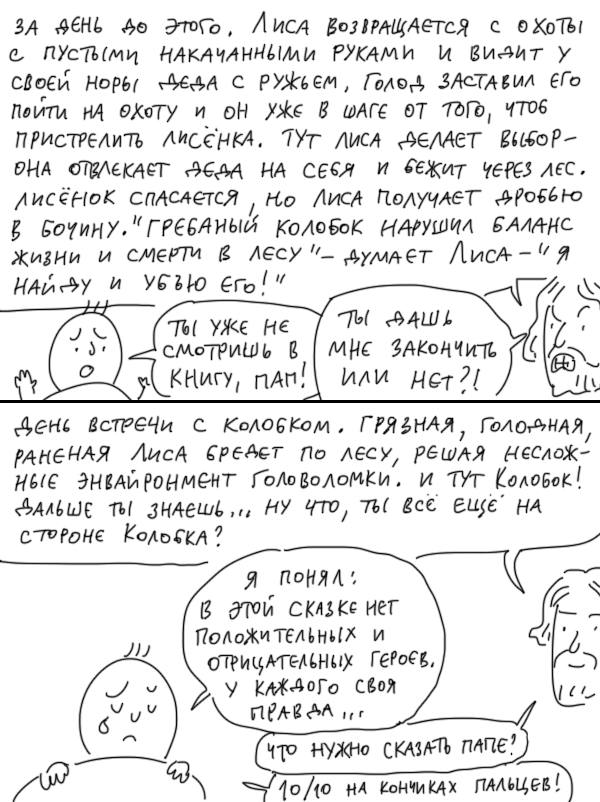 ЗА ДЕНЬ ДО ЭТОГО. ЛИСА ВОЗВРАЩАЕТСЯ С ОХОТЫ
С ПУСТЫМИ НАКАЧАННЫМИ РУКАМИ И ВИДИТ У
СВОЕЙ НОРЫ ДЕДА С РУЖЬЕМ, ГОЛОД ЗАСТАВИЛ ЕГО
ПОЙТИ НА ОХОТУ И ОН УЖЕ В ШАГЕ ОТ ТОГО, ЧТОБ
ПРИСТРЕЛИТЬ ЛИСЁНКА. ТУТ ЛИСА ДЕЛАЕТ ВЫБОР –
ОНА ОТВЛЕКАЕТ ДЕДА НА СЕБЯ И БЕЖИТ ЧЕРЕЗ ЛЕС.
ЛИСЁНОК СПАСАЕТСЯ, НО ЛИСА ПОЛУЧАЕТ ДРОБЬЮ
В БОЧИНУ. "ГРЕБАНЫЙ КОЛОБОК НАРУШИЛ БАЛАНС
ЖИЗНИ И СМЕРТИ В ЛЕСУ" – ДУМАЕТ ЛИСА – "Я
НАЙДУ И УБЪЮ ЕГО!"
ТЫ УЖЕ НЕ
СМОТРИШЬ В
КНИГУ, ПАП!
ТЫ ДАШЬ
МНЕ ЗАКОНЧИТЬ
ИЛИ НЕТ?!
ДЕНЬ ВСТРЕЧИ С КОЛОБКОМ. ГРЯЗНАЯ, ГОЛОДНАЯ,
РАНЕНАЯ ЛИСА БРЕДЕТ ПО ЛЕСУ, РЕШАЯ НЕСЛОЖ-
НЫЕ ЭНВАЙРОНМЕНТ ГОЛОВОЛОМКИ. И ТУТ КОЛОБОК!
ДАЛЬШЕ ТЫ ЗНАЕШЬ... НУ ЧТО, ТЫ ВСЁ ЕЩЁ НА
СТОРОНЕ КОЛОБКА?
Я ПОНЯЛ:
В ЭТОЙ СКАЗКЕ НЕТ
ПОЛОЖИТЕЛЬНЫХ И
ОТРИЦАТЕЛЬНЫХ ГЕРОЕВ.
У КАЖДОГО СВОЯ
ПРАВДА...
ЧТО НУЖНО СКАЗАТЬ ПАПЕ?
10/10 НА КОНЧИКАХ ПАЛЬЦЕВ!